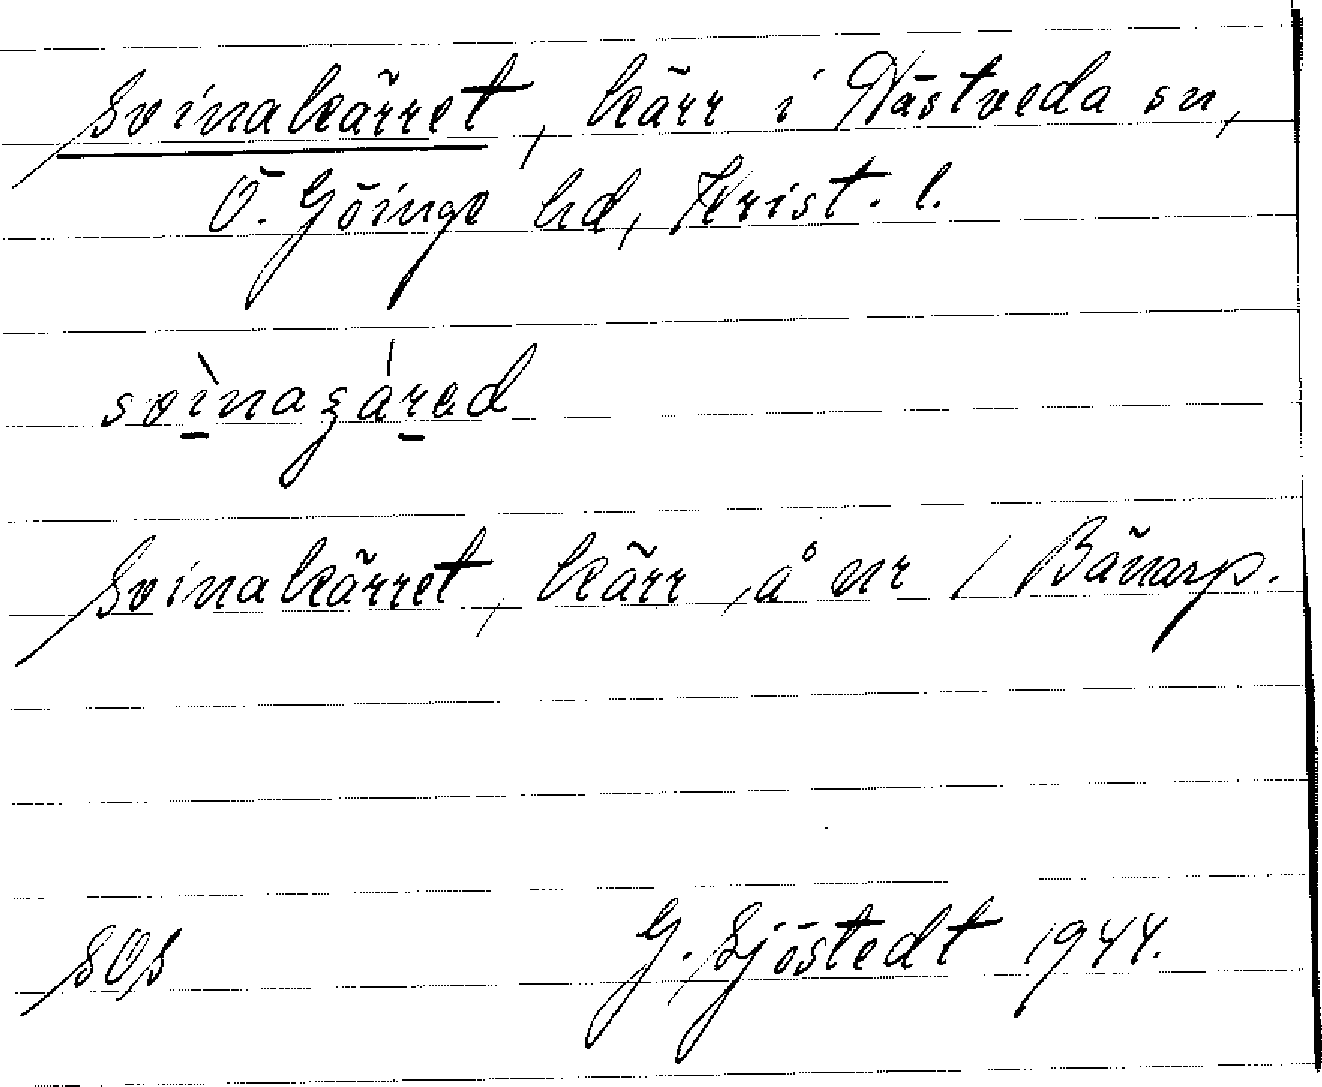 Svinakärret, kärr i Nästveda sn,
Ö. Göinge hd, Krist. l.
Svinakärret, kärr å nr 1 Bänarp.
SOS G. Sjöstedt 1944.